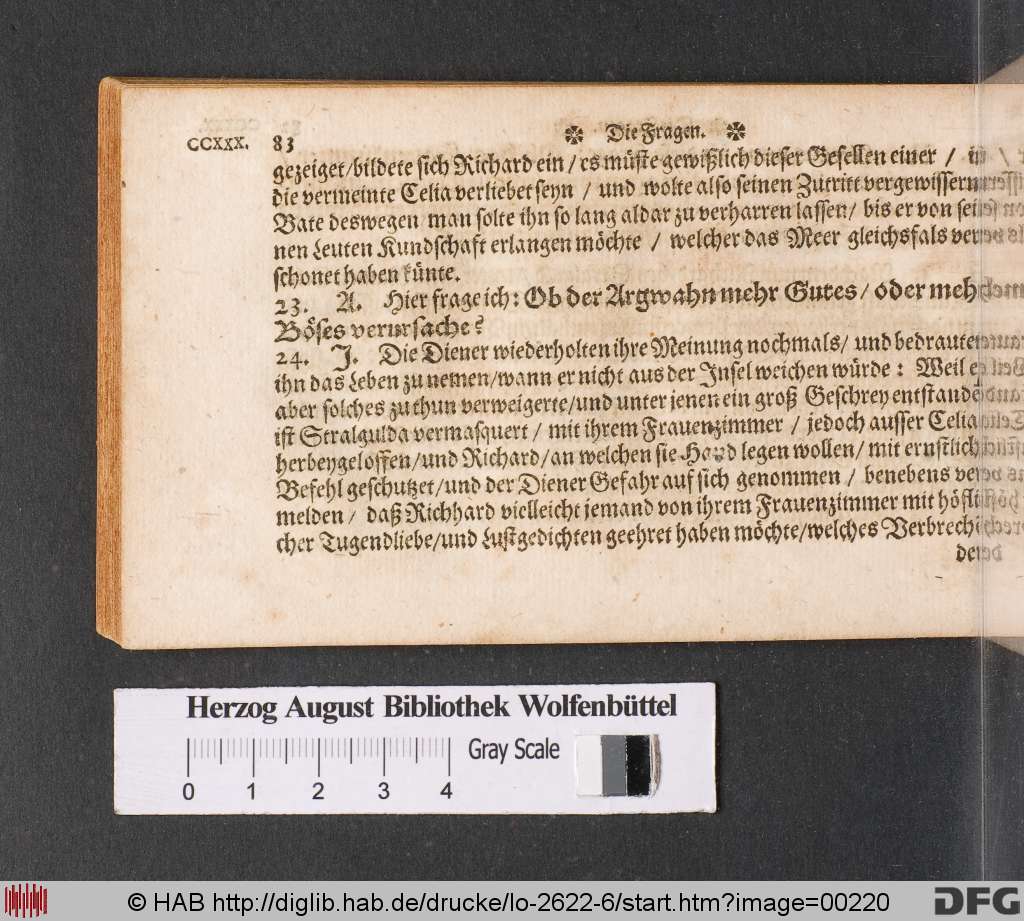 CCXXX. 83 Die Fragen.
gezeiget/bildete sich Richard ein/es müste gewißlich dieser Gesellen einer / in
die vermeinte Celia verliebet seyn / und wolte also seinen Zutritt vergewissern
Bate deswegen man solte ihn so lang aldar zu verharren lassen/ bis er von sei-
nen Leuten Kundschaft erlangen möchte / welcher das Meer gleichsfals ver-
schonet haben künte.
23. A. Hier frage ich: Ob der Argwahn mehr Gutes/ oder mehr
Böses verursache?
24. J. Die Diener wiederholten ihre Meinung nochmals/ und bedrauten
ihn das Leben zu nemen/wann er nicht aus der Insel weichen würde: Weil er
aber solches zu thun verweigerte/und unter jenen ein groß Geschrey entstanden
ist Stralgulda vermasquert / mit ihrem Frauenzimmer / jedoch ausser Celia
herbeygeloffen/und Richard/an welchen sie Hand legen wollen/ mit ernstlich
Befehl geschutzet/und der Diener Gefahr auf sich genommen / benebens ver-
melden / daß Richhard vielleicht jemand von ihrem Frauenzimmer mit höfli-
cher Tugendliebe/und Lustgedichten geehret haben möchte/welches Verbrech
de
Herzog August Bibliothek Wolfenbüttel
Gray Scale
0 1 2 3 4
© HAB http://diglib.hab.de/drucke/lo-2622-6/start.htm?image=00220
DFG